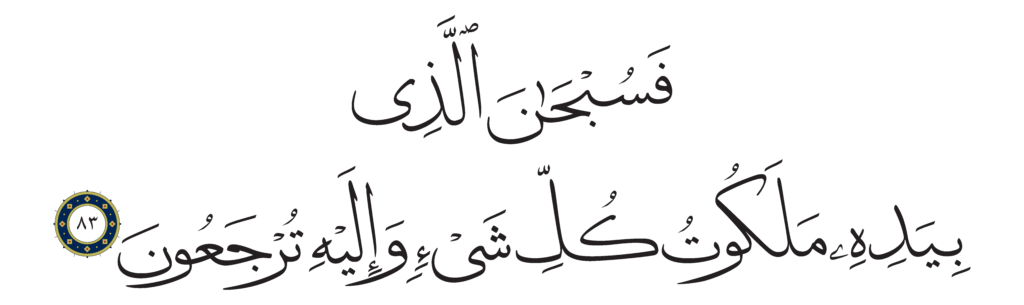 فَسُبْحَٰنَ ٱلَّذِى
بِيَدِهِۦ مَلَكُوتُ كُلِّ شَىْءٍۢ وَإِلَيْهِ تُرْجَعُونَ ٨٣